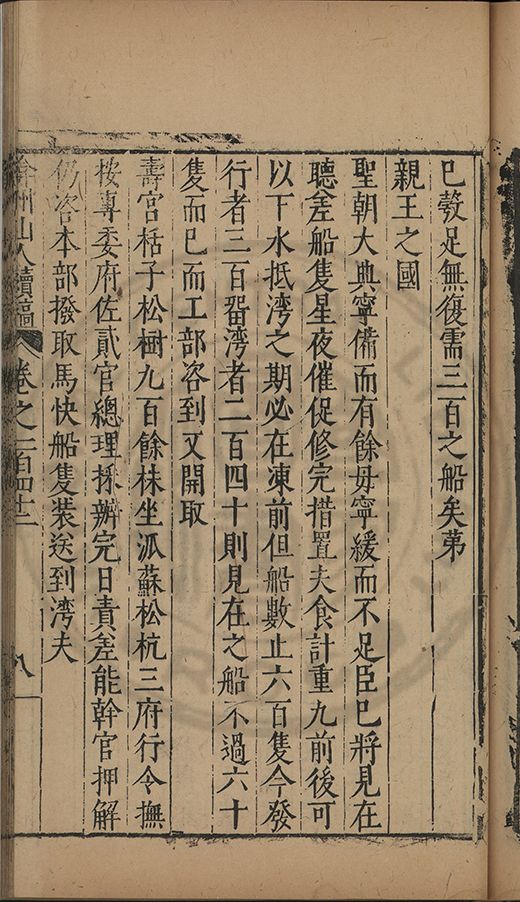 已彀足無復需三百之船矣苐
親王之國
聖朝大典寧備而有餘毋寧緩而不足臣已將見在
聽差船隻星夜催促修完措置夫食計重九前後可
以下水抵湾之期必在凍前但船數止六百隻今發
行者三百畱湾者二百四十則見在之船不過六十
隻而已而工部咨到又開取
壽宮栝子松樹九百餘株坐派蘇松杭三府行令撫
按專委府佐貳官總理採辦完日責差能幹官押解
仍咨本部撥取馬快船隻装送到湾夫
弇州山人續稿 卷之一百四十二 八